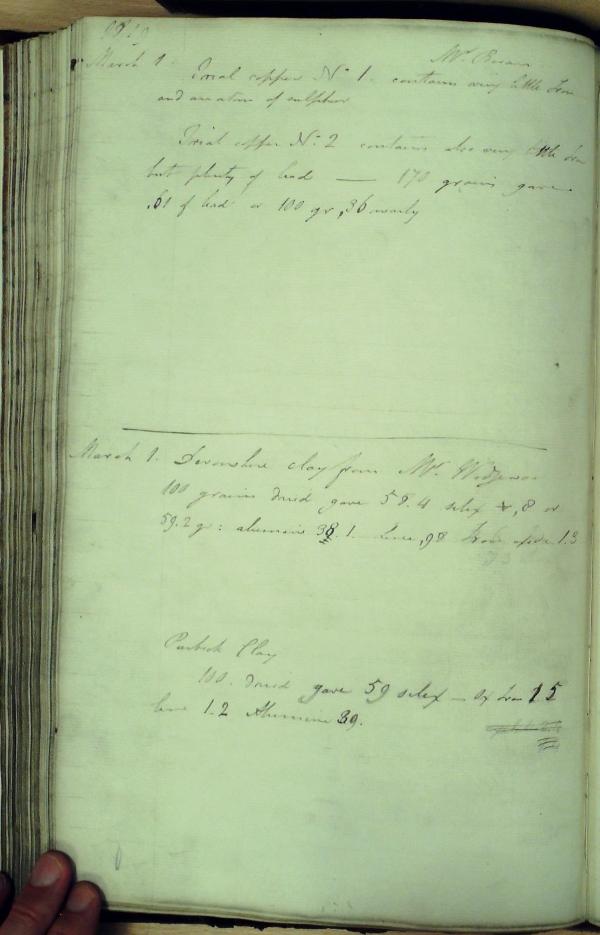 March 1.
Trial copper No 1. contains very little Iron
and an atom of sulphur
Trial copper No: 2 contains also very little Iron
but plenty of lead — 170 grains gave
.61 of lead or 100 gr ,36 nearly
March 1. Devonshire clay from Mr. Wedgwood
100 grains dried gave 58.4 silex + ,8 or
59.2 gr: alumine 38.1. Lime ,98 Iron oxide 1.3
Purbeck Clay
100. dried gave 59 silex — Ox Iron 15
lime 1.2 Alumine 39.